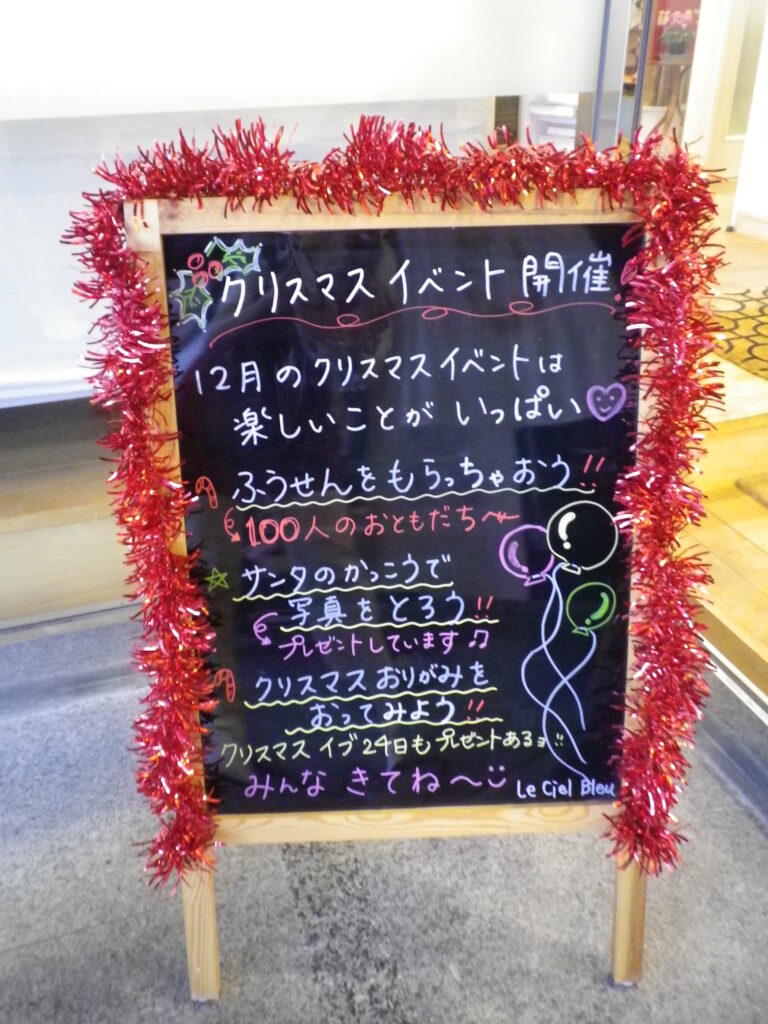 クリスマス イベント 開催
12月のクリスマスイベントは
楽しいことが いっぱい
ふうせんをもらっちゃおう!!
100人のおともだちへ
サンタのかっこうで
写真をとろう!!
プレゼントしています♫
クリスマスおりがみを
おってみよう!!
クリスマスイブ24日もプレゼントあるョ!!
みんな きてね〜
Le Ciel Bleu